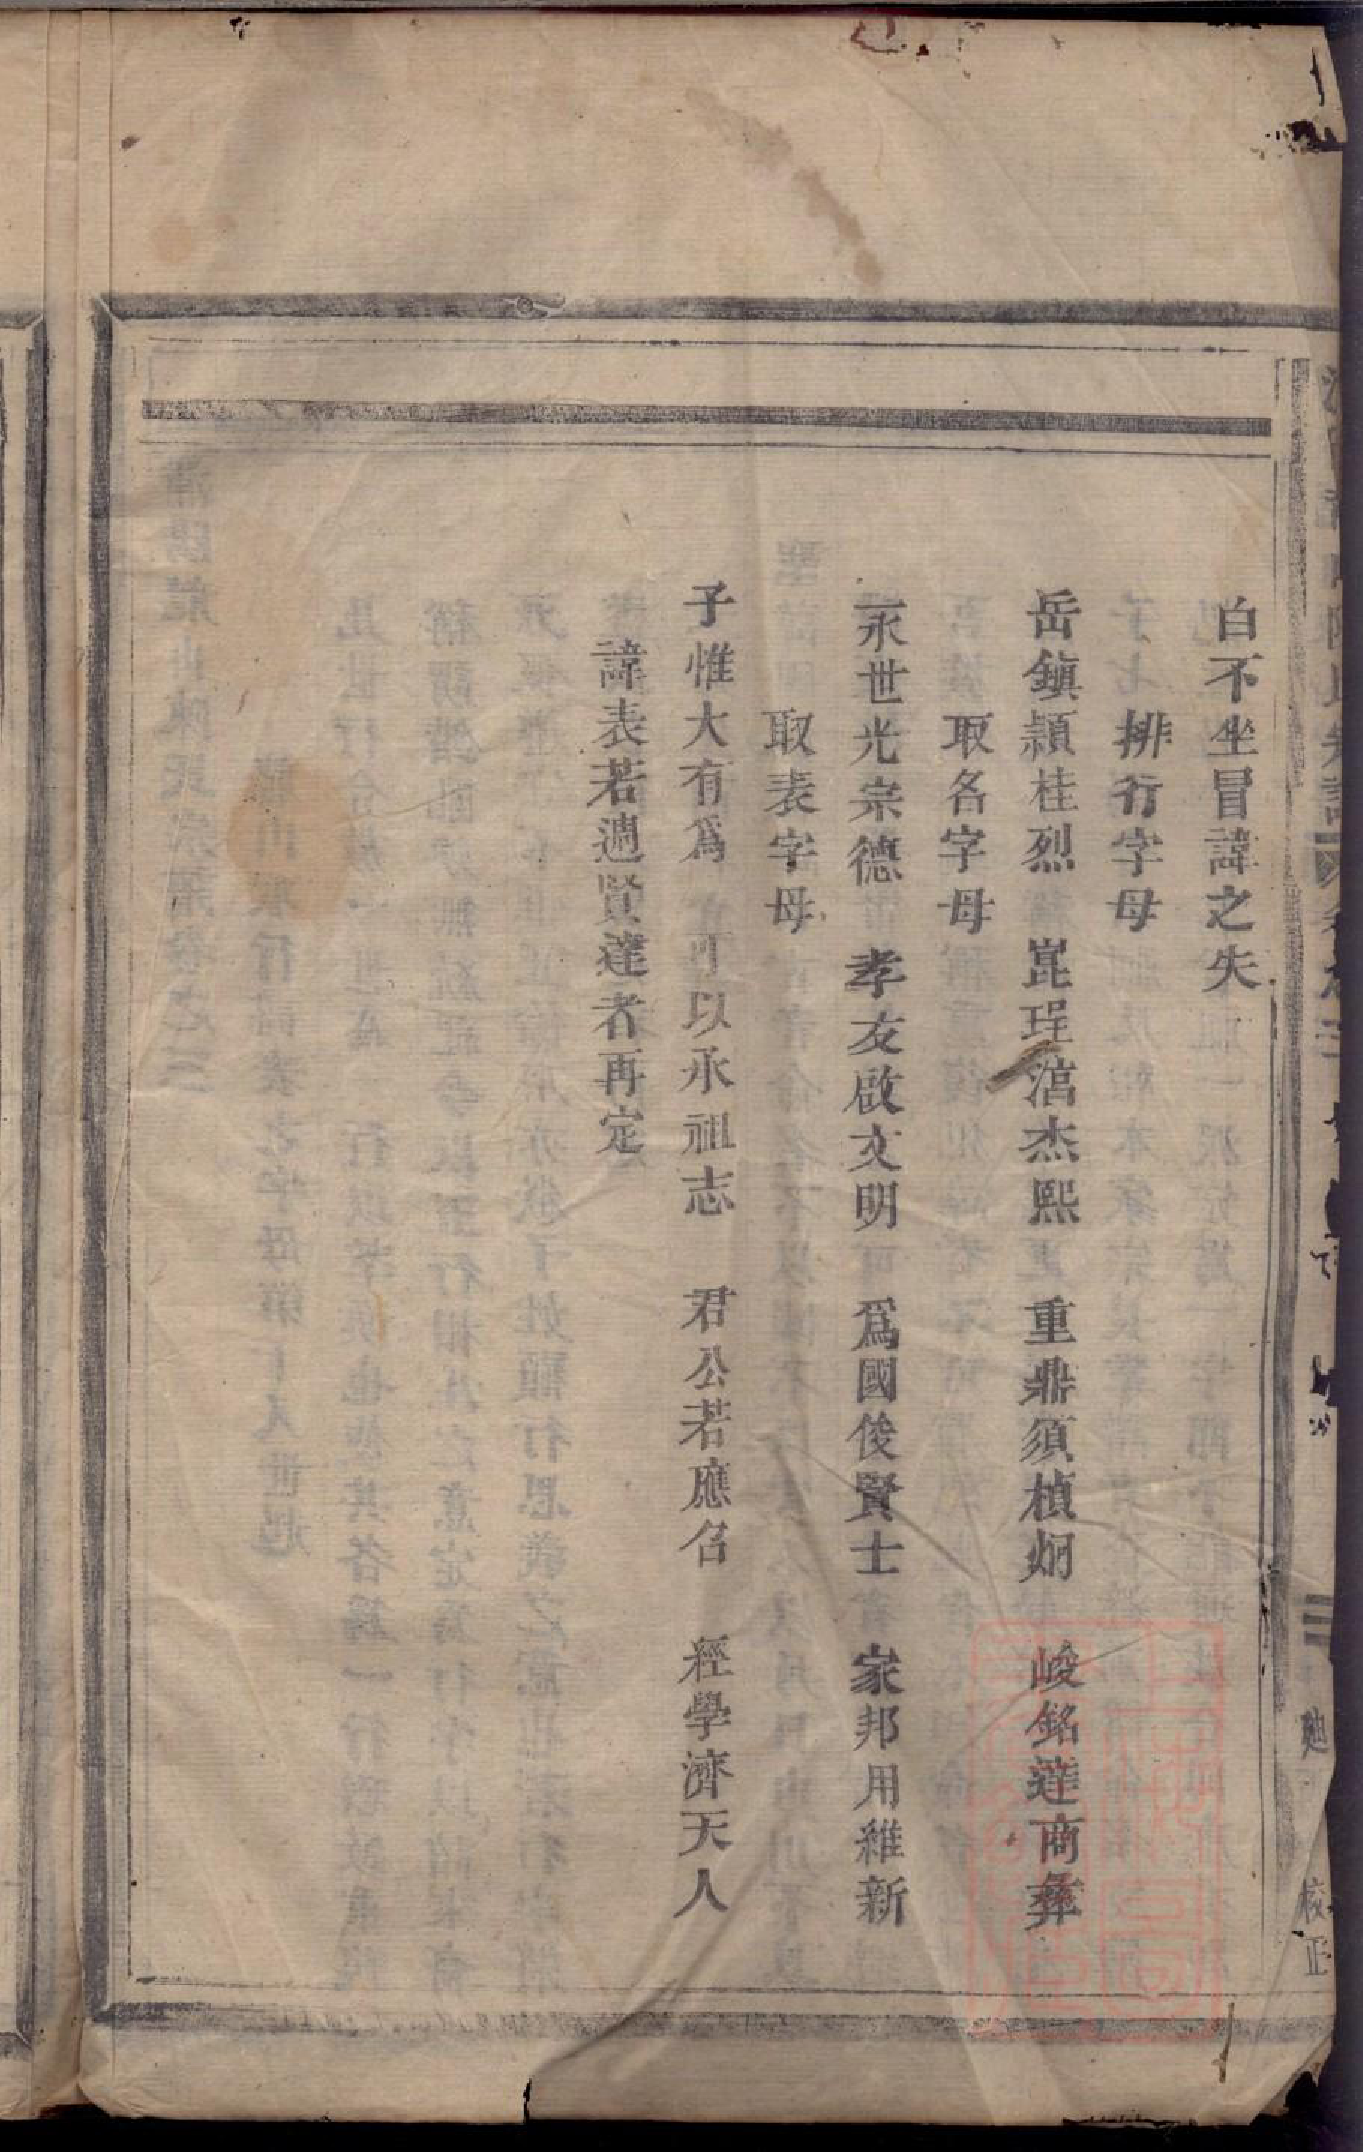 白不坐冒諱之失
排行字母
岳鎮頴桂烈 崑珵湻杰熙 重鼎須楨炯 峻銘達商彝
取名字母
永世光宗德 孝友啟文明 爲國俊賢士 家邦用維新
取表字母
子惟大有爲 可以承祖志 君公若應召 經學濟天人
諱表若週賢達者再定
校正